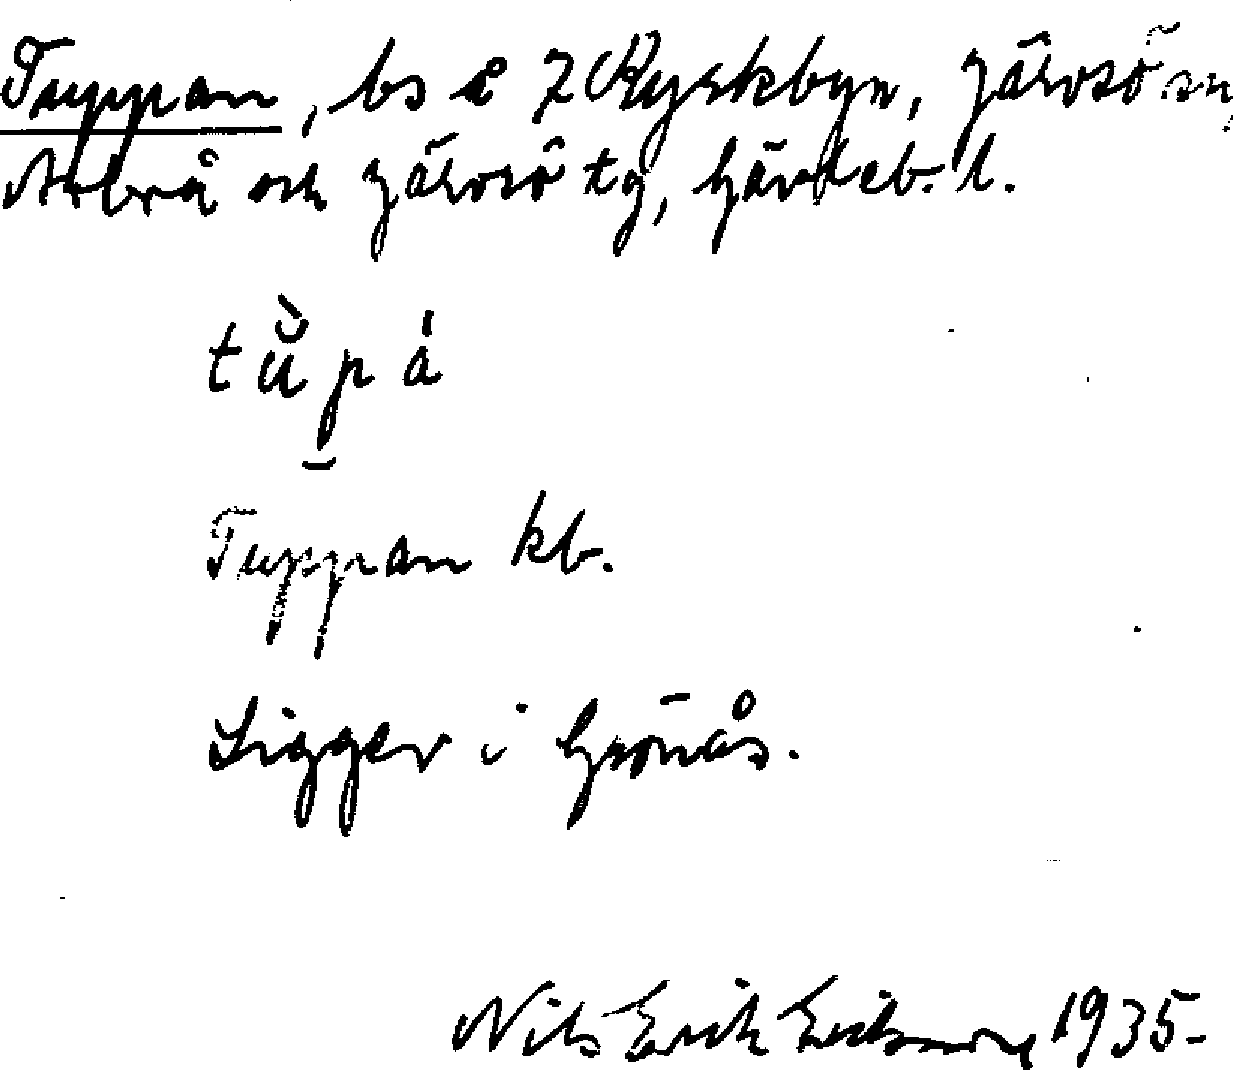 Tuppan, bs å 7 Kyrkbyn, Järvsö sn,
Arbrå och Järvsö tg, Gävleb. l.
tŭ̀pá
Tuppan kb.
Ligger i Grönås.
Nils Erik Eriksson, 1935.